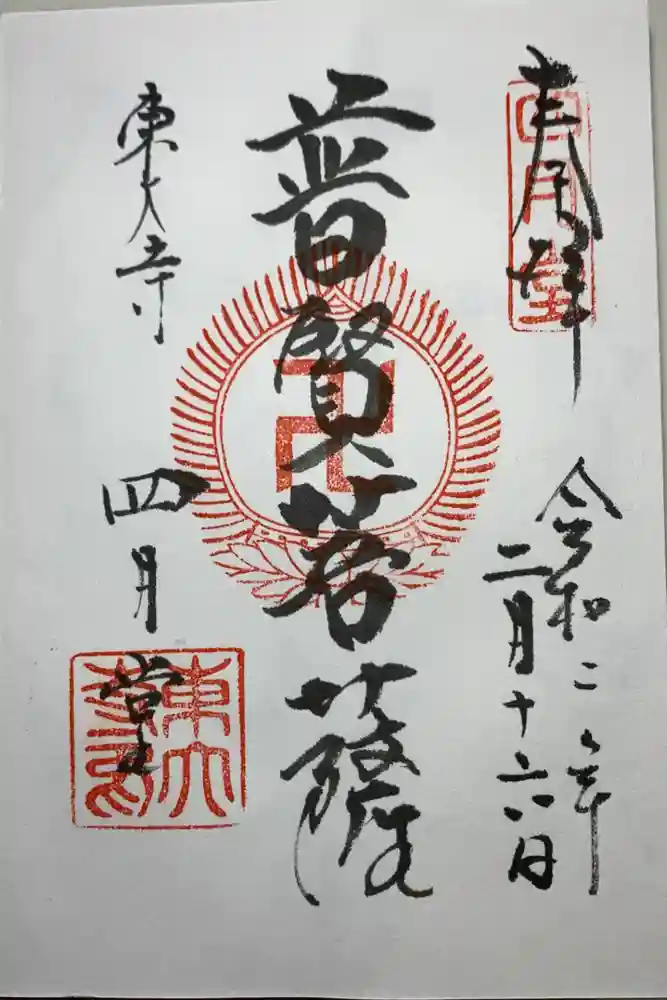 奉拝
四月堂
令和二年
二月十六日
普賢菩薩
東大寺
四月堂
東大